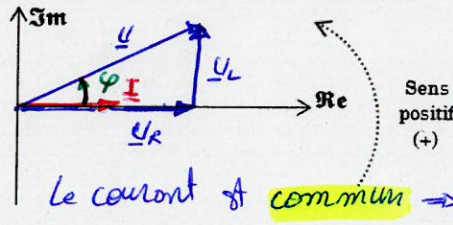 ℑm
U
U_L
φ
I
U_R
ℜe
Sens
positif
(+)
Le courant et commun ⇒